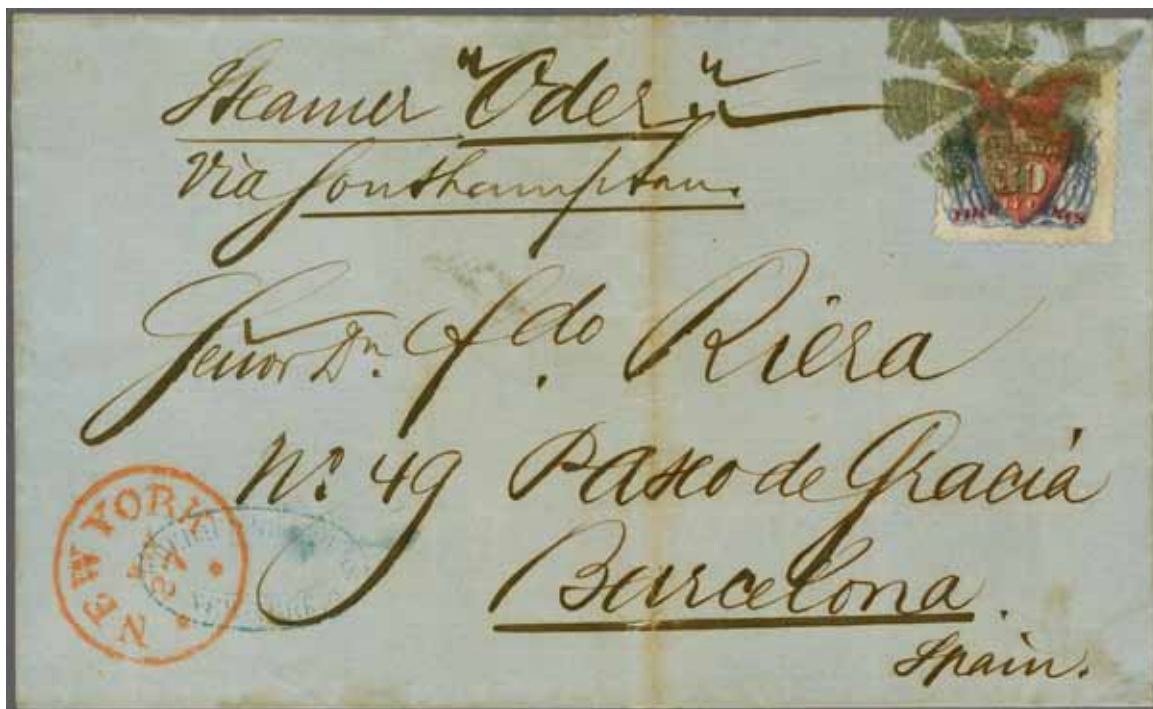 Steamer "Oder"
Via Southampton.
Señor Dn. Fdo. Riera
No. 49 Paseo de Gracia
Barcelona.
Spain.
NEW YORK
30